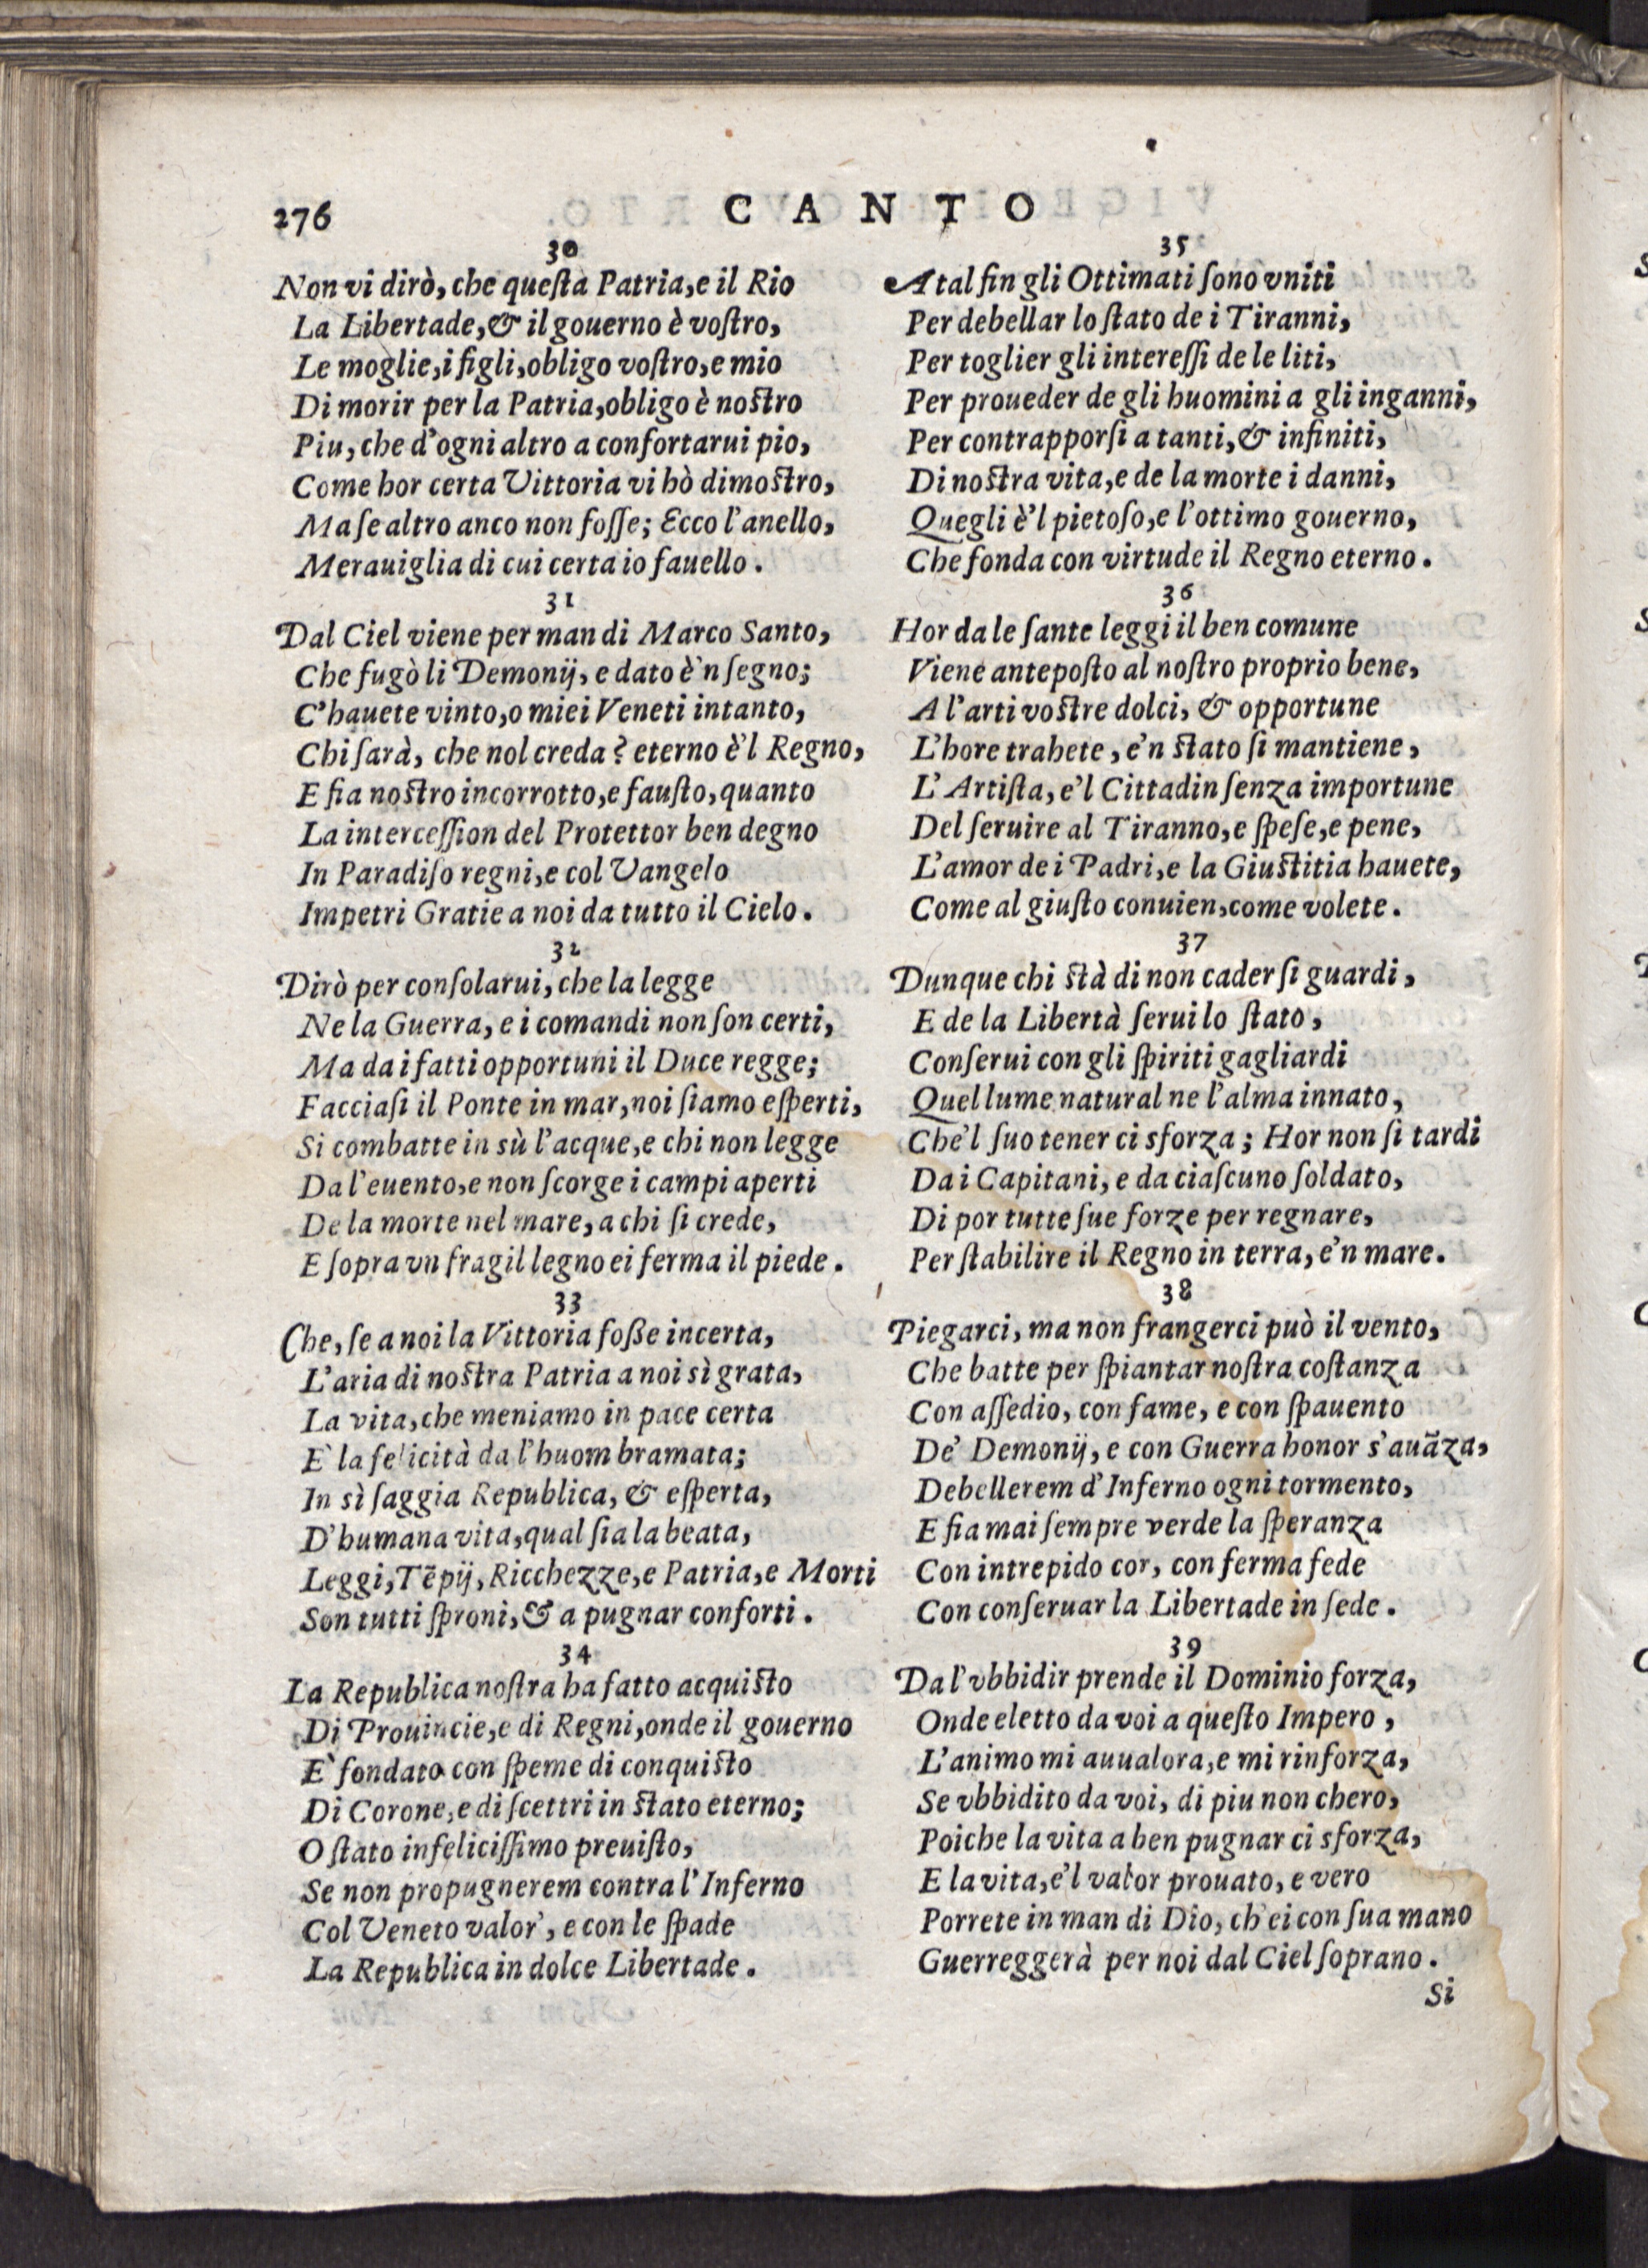 276
CANTO
30
Non vi dirò, che queſta Patria, e il Rio
La Libertade, & il gouerno è voſtro,
Le moglie, i figli, obligo voſtro, e mio
Di morir per la Patria, obligo è noſtro
Piu, che d'ogni altro a confortarui pio,
Come hor certa Vittoria vi hò dimoſtro,
Ma ſe altro anco non foſſe; Ecco l'anello,
Merauiglia di cui certa io fauello.
31
Dal Ciel viene per man di Marco Santo,
Che fugò li Demonij, e dato è'n ſegno;
C'hauete vinto, o miei Veneti intanto,
Chi ſarà, che nol creda? eterno è'l Regno,
E fia noſtro incorrotto, e fauſto, quanto
La interceſſion del Protettor ben degno
In Paradiſo regni, e col Vangelo
Impetri Gratie a noi da tutto il Cielo.
32
Dirò per conſolarui, che la legge
Ne la Guerra, e i comandi non ſon certi,
Ma da i fatti opportuni il Duce regge;
Facciaſi il Ponte in mar, noi ſiamo eſperti,
Si combatte in sù l'acque, e chi non legge
Da l'euento, e non ſcorge i campi aperti
De la morte nel mare, a chi ſi crede,
E ſopra vn fragil legno ei ferma il piede.
33
Che, ſe a noi la Vittoria foſſe incerta,
L'aria di noſtra Patria a noi sì grata,
La vita, che meniamo in pace certa
E' la felicità da l'huom bramata;
In sì ſaggia Republica, & eſperta,
D'humana vita, qual ſia la beata,
Leggi, Tẽpij, Ricchezze, e Patria, e Morti
Son tutti ſproni, & a pugnar conforti.
34
La Republica noſtra ha fatto acquiſto
Di Prouincie, e di Regni, onde il gouerno
E' fondato con ſpeme di conquiſto
Di Corone, e di ſcettri in ſtato eterno;
O ſtato infeliciſſimo preuiſto,
Se non propugnerem contra l'Inferno
Col Veneto valor', e con le ſpade
La Republica in dolce Libertade.
35
A tal fin gli Ottimati ſono vniti
Per debellar lo ſtato de i Tiranni,
Per toglier gli intereſſi de le liti,
Per proueder de gli huomini a gli inganni,
Per contrapporſi a tanti, & infiniti,
Di noſtra vita, e de la morte i danni,
Quegli è'l pietoſo, e l'ottimo gouerno,
Che fonda con virtude il Regno eterno.
36
Hor da le ſante leggi il ben comune
Viene antepoſto al noſtro proprio bene,
A l'arti voſtre dolci, & opportune
L'hore trahete, e'n ſtato ſi mantiene,
L'Artiſta, e'l Cittadin ſenza importune
Del ſeruire al Tiranno, e ſpeſe, e pene,
L'amor de i Padri, e la Giuſtitia hauete,
Come al giuſto conuien, come volete.
37
Dunque chi ſtà di non cader ſi guardi,
E de la Libertà ſerui lo ſtato,
Conſerui con gli ſpiriti gagliardi
Quel lume natural ne l'alma innato,
Che'l ſuo tener ci sforza; Hor non ſi tardi
Da i Capitani, e da ciaſcuno ſoldato,
Di por tutte ſue forze per regnare,
Per ſtabilire il Regno in terra, e'n mare.
38
Piegarci, ma non frangerci può il vento,
Che batte per ſpiantar noſtra coſtanza
Con aſſedio, con fame, e con ſpauento
De' Demonij, e con Guerra honor s'auãza,
Debellerem d'Inferno ogni tormento,
E fia mai ſempre verde la ſperanza
Con intrepido cor, con ferma fede
Con conſeruar la Libertade in ſede.
39
Da l'vbbidir prende il Dominio forza,
Onde eletto da voi a queſto Impero,
L'animo mi auualora, e mi rinforza,
Se vbbidito da voi, di piu non chero,
Poiche la vita a ben pugnar ci sforza,
E la vita, e'l valor prouato, e vero
Porrete in man di Dio, ch'ei con ſua mano
Guerreggerà per noi dal Ciel ſoprano.
Si